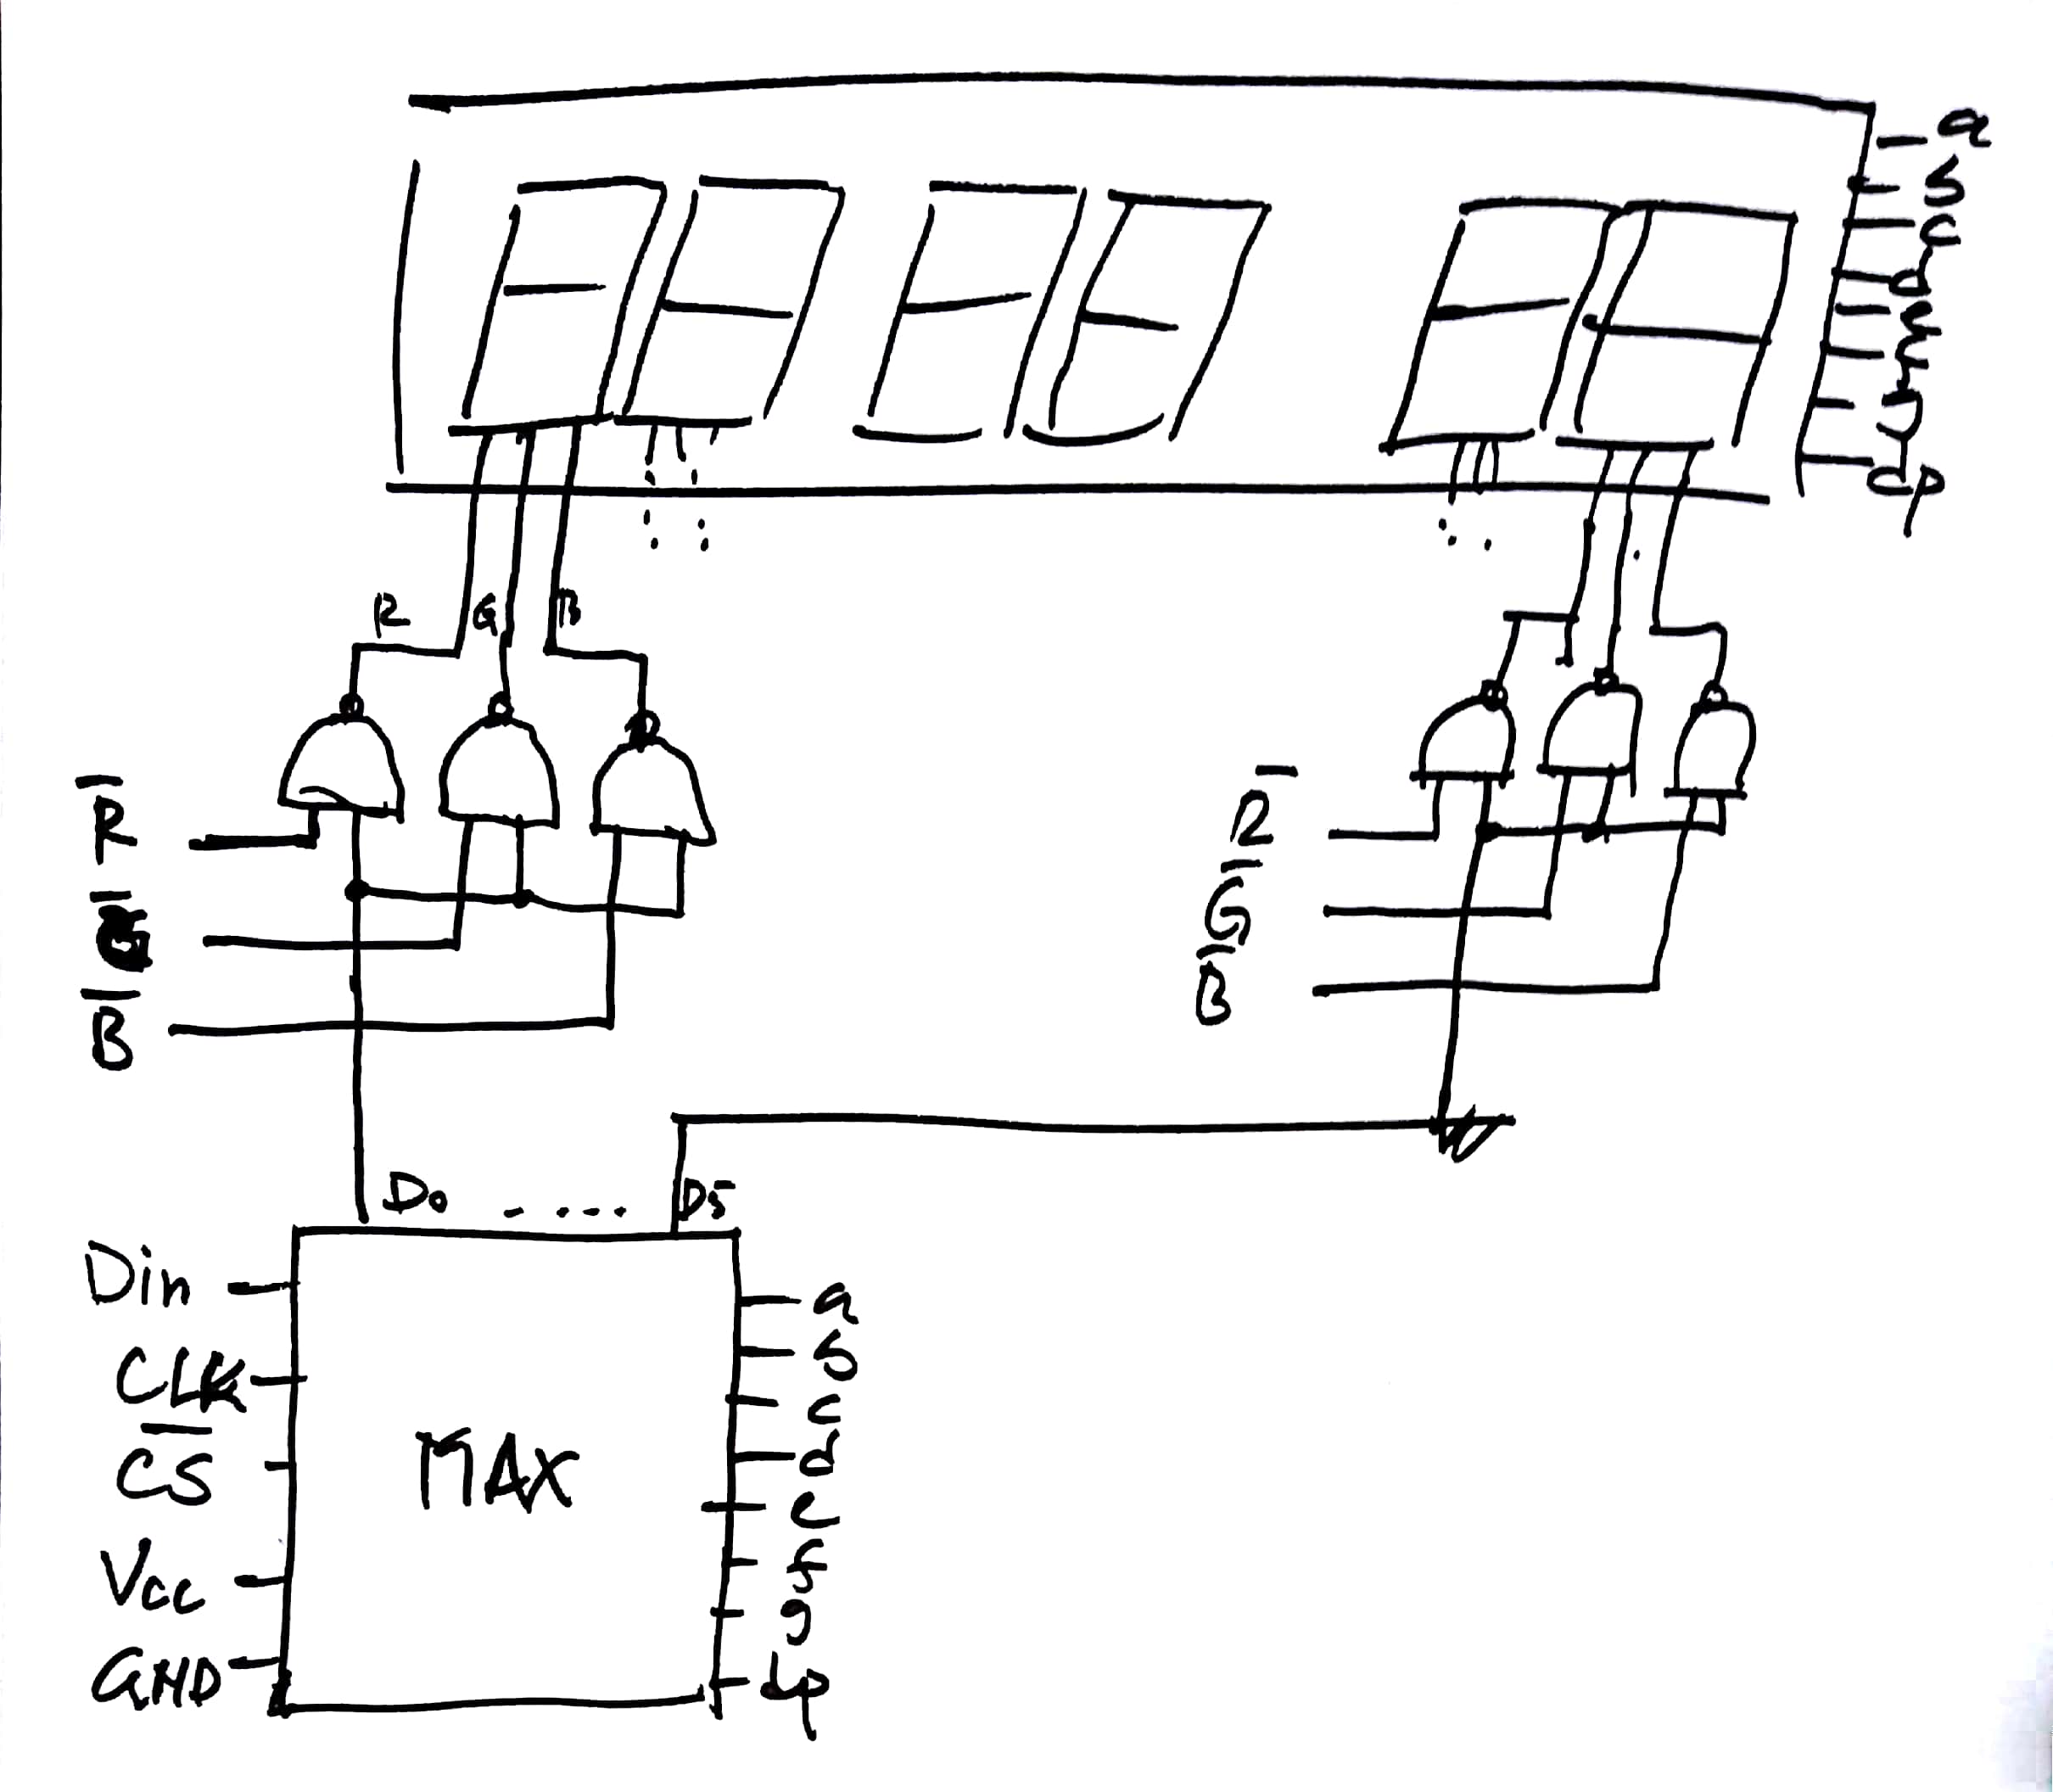 a
b
c
d
e
f
g
dp
R G B
R̅
G̅
B̅
R̅
G̅
B̅
D0 ..... D5
Din
CLK
C̅S̅
Vcc
GND
MAX
a
b
c
d
e
f
g
dp